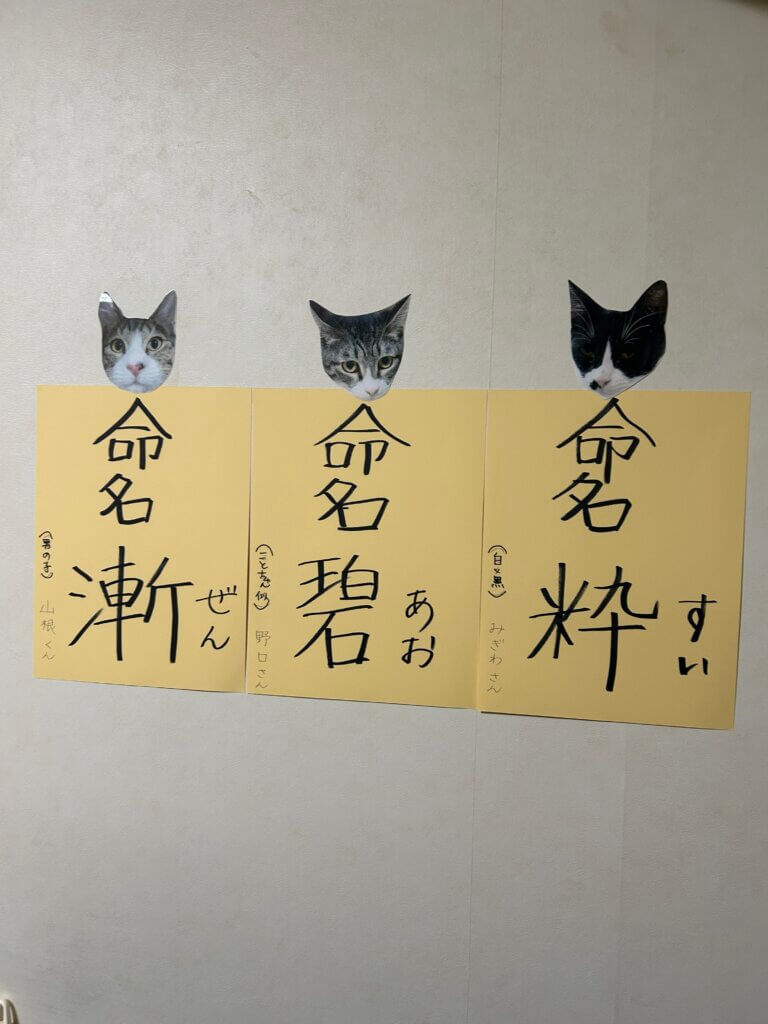 命名
漸
ぜん
(男の子)
山根くん
命名
碧
あお
(ことちゃん似)
野口さん
命名
粋
すい
(白×黒)
みぎわさん